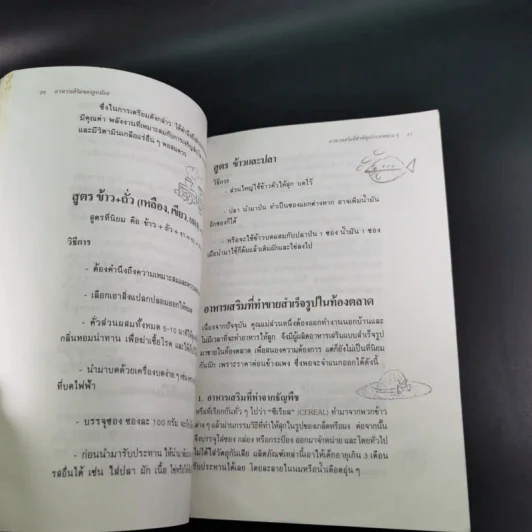 อาหารเสริมของลูกน้อย
ซึ่งในการเตรียมดังกล่าว
มีคุณค่า พลังงานที่เหมาะสมกับการเจริญ
และมีวิตามินเกลือแร่อื่น ๆ พอสมควร
สูตร ข้าว+ถั่ว (เหลือง, เขียว,
สูตรที่นิยม คือ ข้าว + ถั่ว +
วิธีการ
- ต้องคำนึงถึงความเหมาะสมและความ
- เลือกเอาสิ่งแปลกปลอมออกให้หมด
- คั่วส่วนผสมทั้งหมด 5-10 นาที
กลิ่นหอมน่าทาน เพื่อฆ่าเชื้อโรค และ
- นำมาบดด้วยเครื่องบดง่าย ๆ เช่น
ที่บดไฟฟ้า
- บรรจุซอง ซองละ 100 กรัม
- ก่อนนำมารับประทาน ให้นำมา
รสอื่นได้ เช่น ใส่ปลา ผัก เนื้อ
สูตร ข้าวและปลา
วิธีการ
- ส่วนใหญ่ใช้ข้าวตัวให้สุก บดไว้
- ปลา นำมาป่น ทำเป็นซองแยกต่างหาก อาจเพิ่มน้ำมัน
อีกซองก็ได้
- หรือจะใช้ข้าวบดผสมกับปลาป่น 1 ซอง น้ำมัน 1 ซอง
เมื่อนำมาใช้ก็ต้มแล้วเติมผักและไข่ลงไป
อาหารเสริมที่ทำขายสำเร็จรูปในท้องตลาด
เนื่องจากปัจจุบัน คุณแม่ส่วนหนึ่งต้องออกทำงานนอกบ้านและ
ไม่มีเวลาที่จะทำอาหารให้ลูก จึงมีผู้ผลิตอาหารเสริมแบบสำเร็จรูป
มาขายในท้องตลาด เพื่อสนองความต้องการ แต่ก็ยังไม่เป็นที่นิยม
กันนัก เพราะราคาค่อนข้างแพง ซึ่งพอจะจำแนกออกได้ดังนี้
1. อาหารเสริมที่ทำจากธัญพืช
หรือที่เรียกกันทั่ว ๆ ไปว่า "ซีเรียล" (CEREAL) ทำมาจากพวกข้าว
ต่าง ๆ แล้วผ่านกรรมวิธีที่ทำให้สุกในรูปของเกล็ดหรือผง ต่อจากนั้น
จึงบรรจุใส่ซอง กล่อง หรือกระป๋อง ออกมาจำหน่าย และโดยทั่วไป
ไม่ได้ใส่วัตถุกันเสีย ผลิตภัณฑ์เหล่านี้เอาให้เด็กอายุเกิน 3 เดือน
รับประทานได้เลย โดยละลายในนมหรือน้ำเดือดอุ่น ๆ